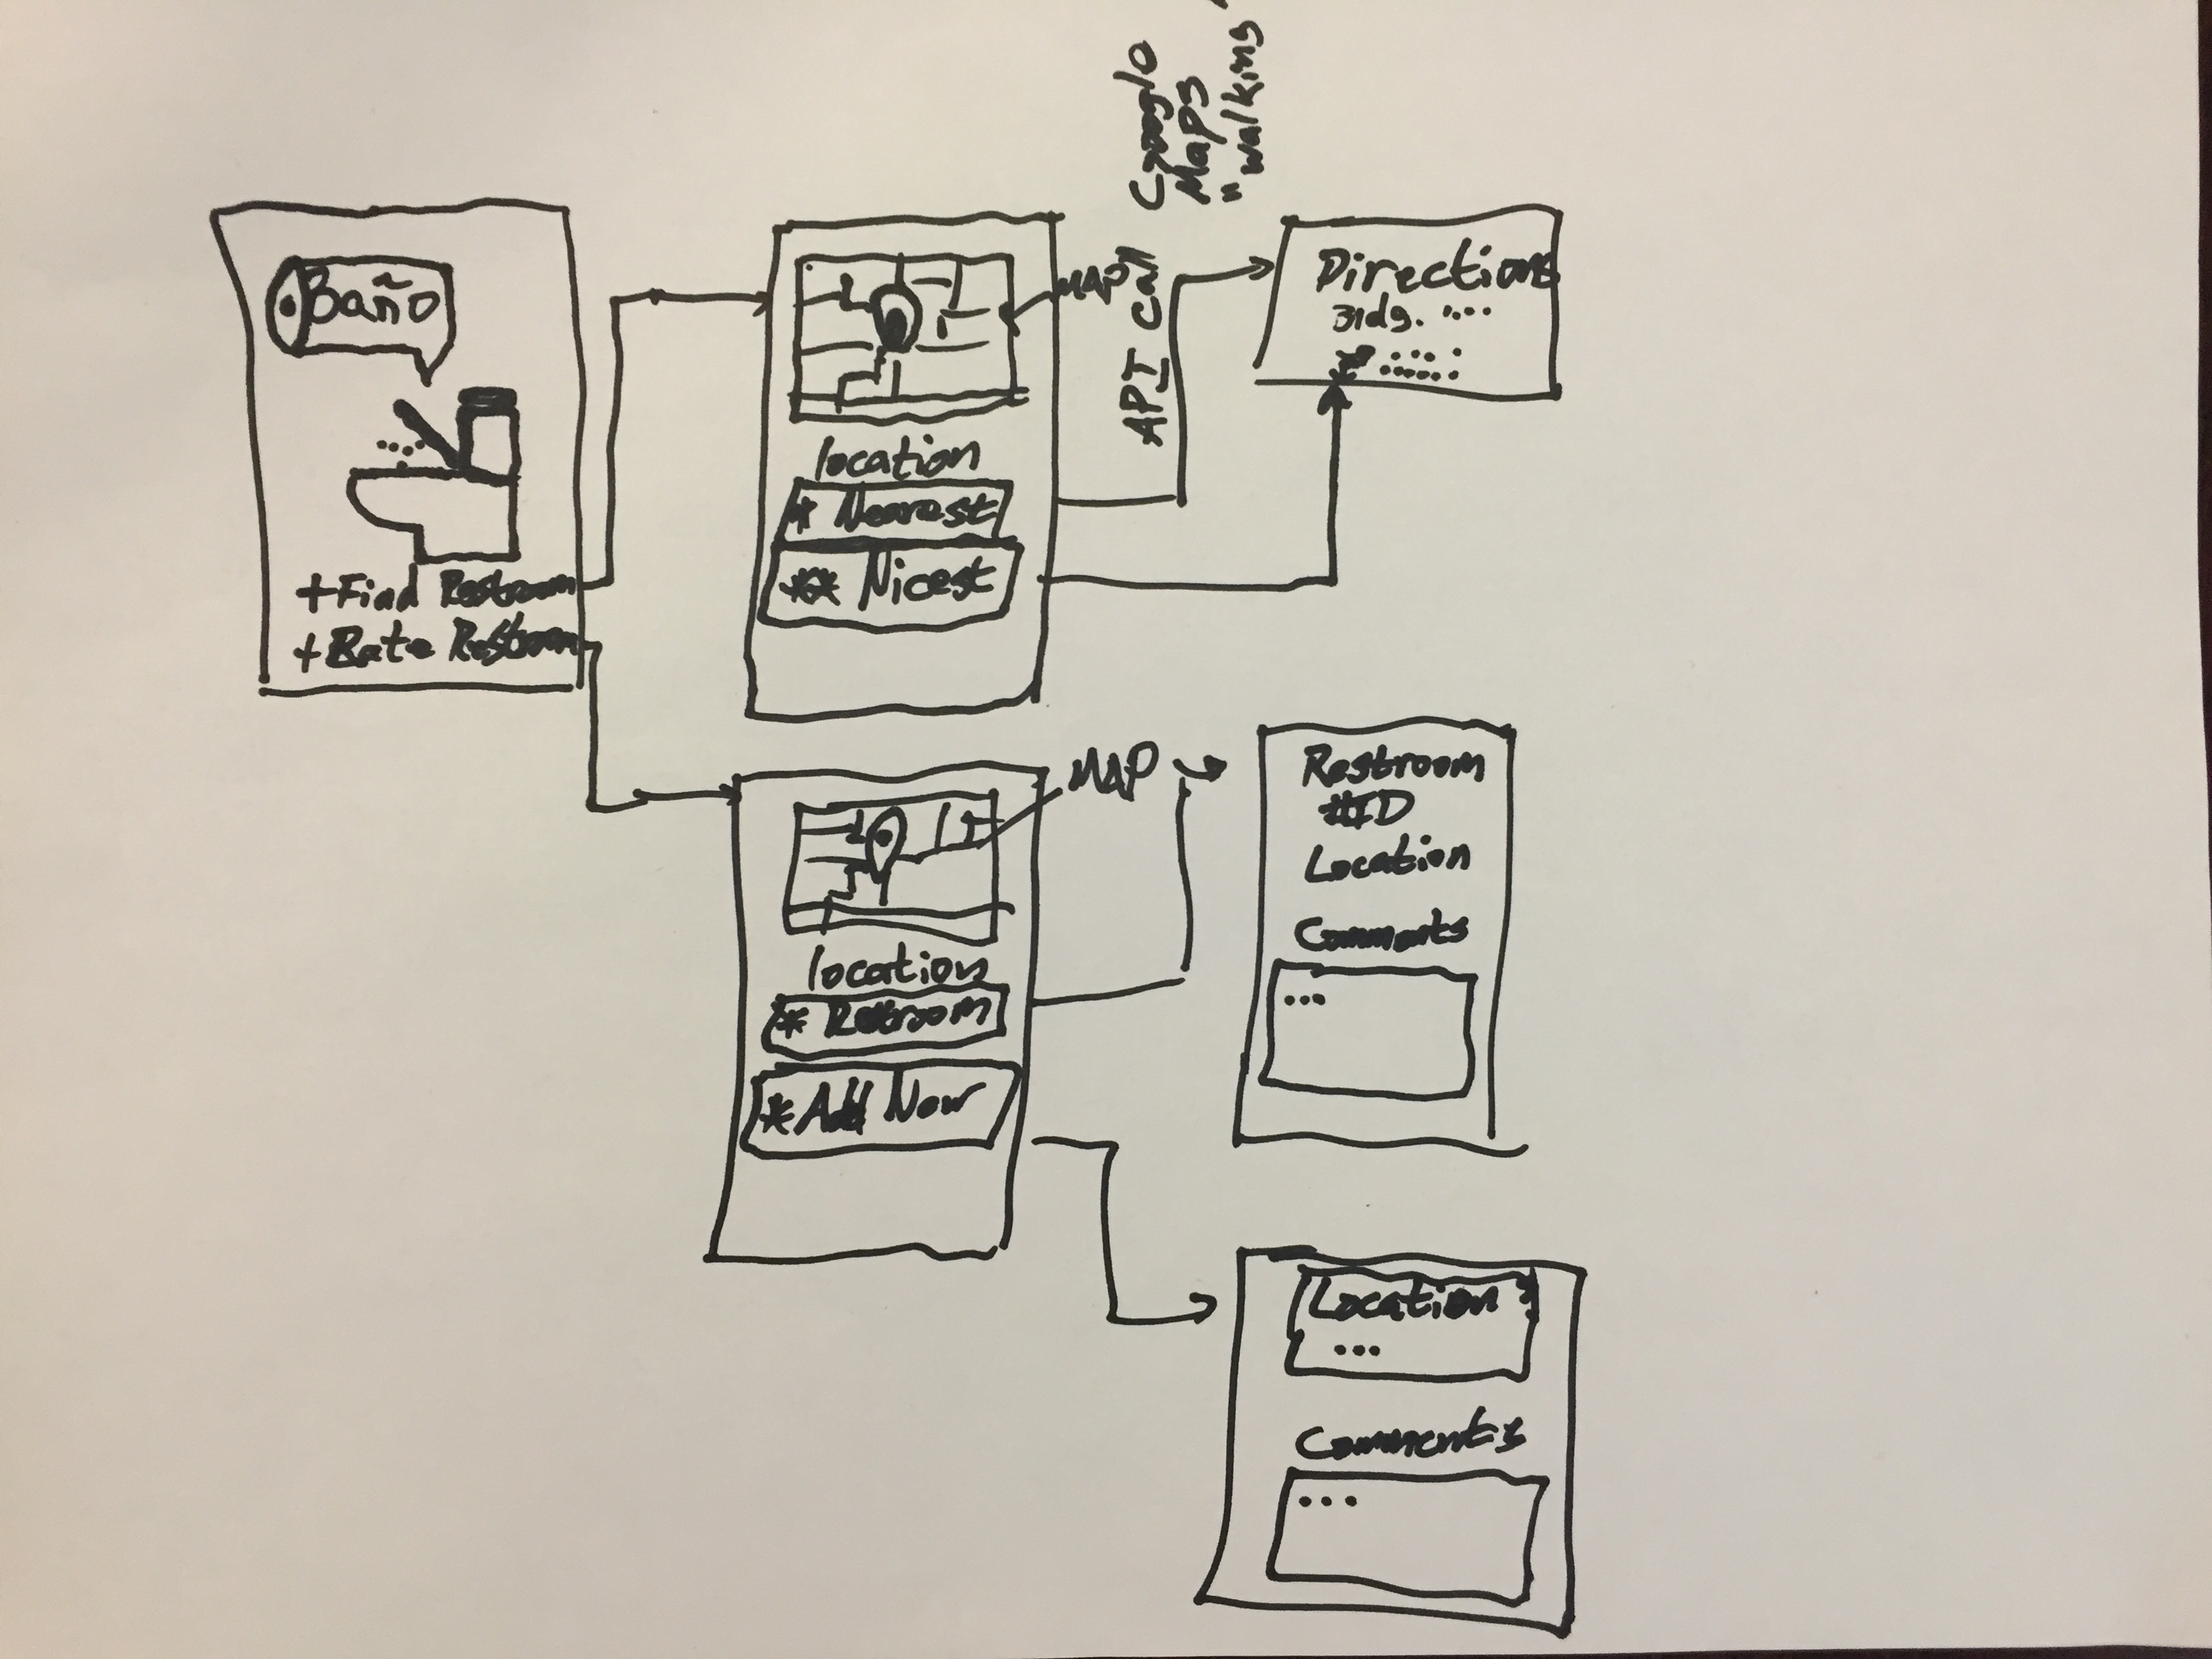 Baño
+ Find Restroom
+ Rate Restroom
MAP
location
* Nearest
** Nicest
API Call
Google
Maps
"walking
Directions
Bldg. ...
MAP
location
* Restroom
* Add New
Restroom
#ID
Location
Comments
...
Location?
...
Comments
...